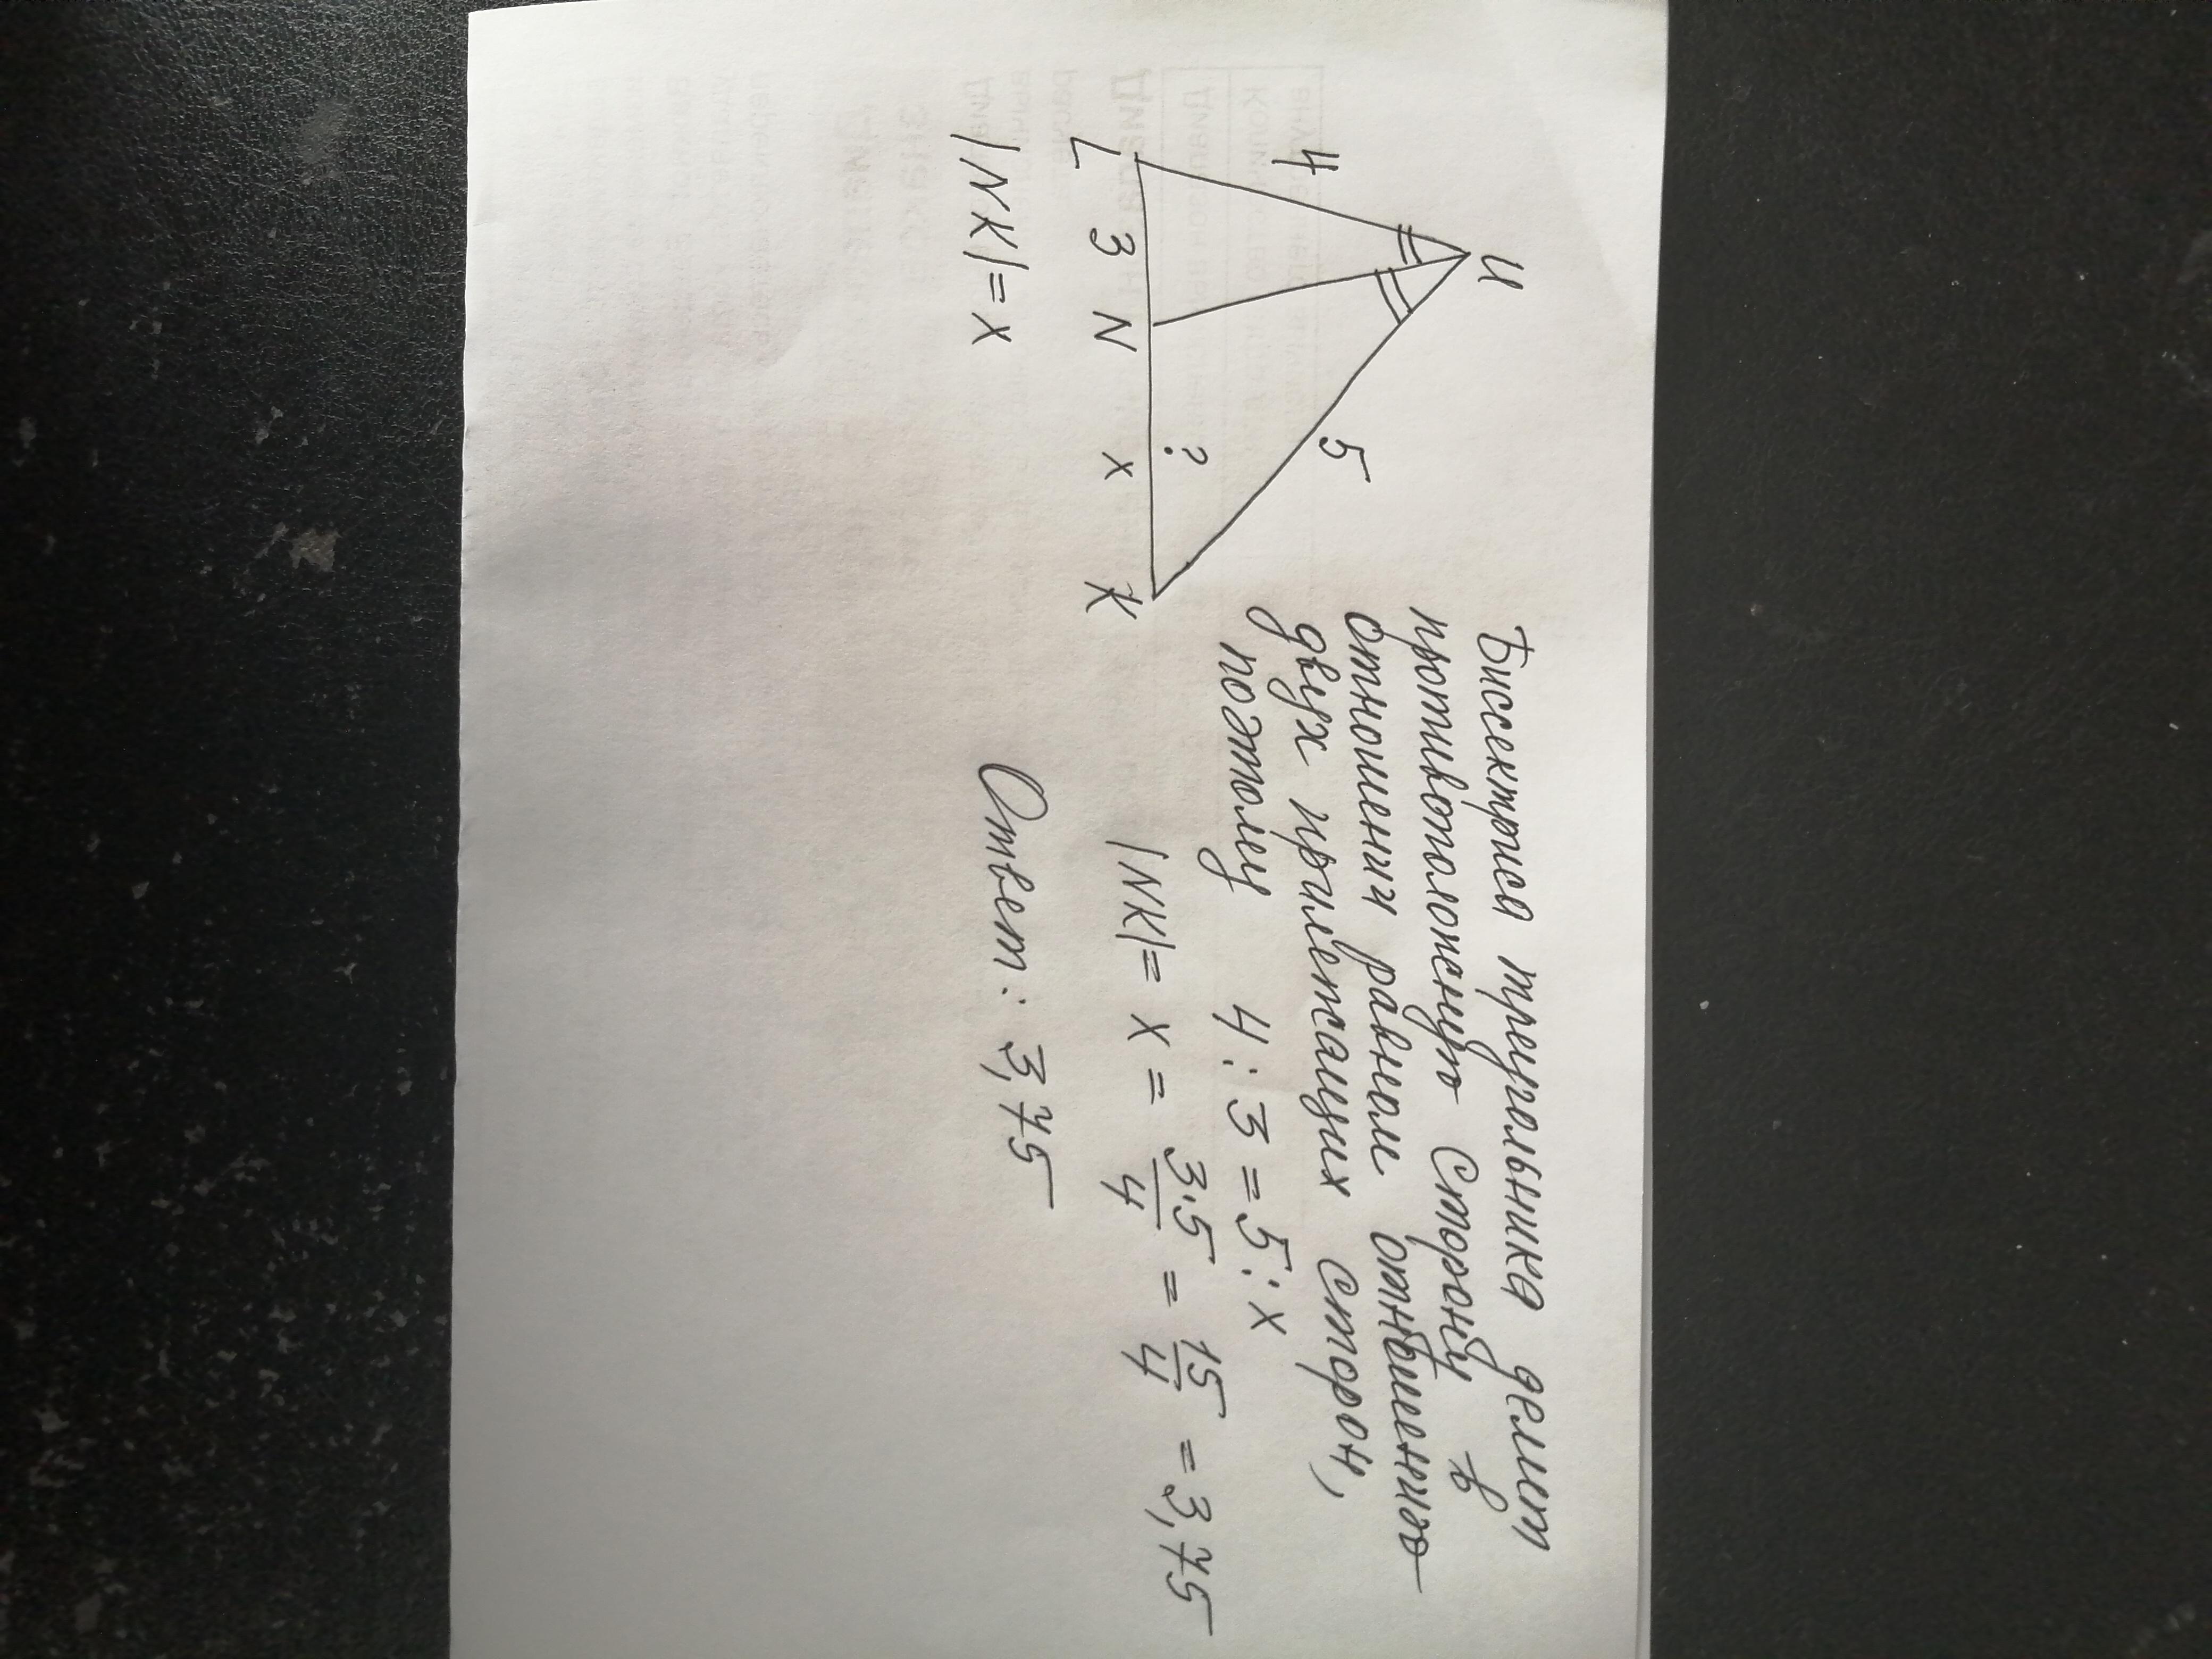 Биссектриса треугольника делит
противоположную сторону в
отношении равном отношению
двух прилежащих сторон,
поэтому 4 : 3 = 5 : x
|NK| = x = 3·5/4 = 15/4 = 3,75
Ответ: 3,75
4
5
?
L 3 N x K
|NK| = x